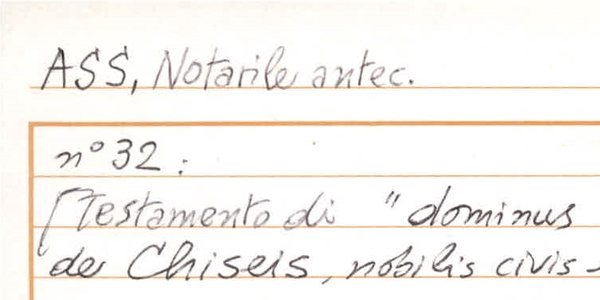 ASS, Notarile antec.
n° 32:
[Testamento di "dominus
de Chiseis, nobilis civis -